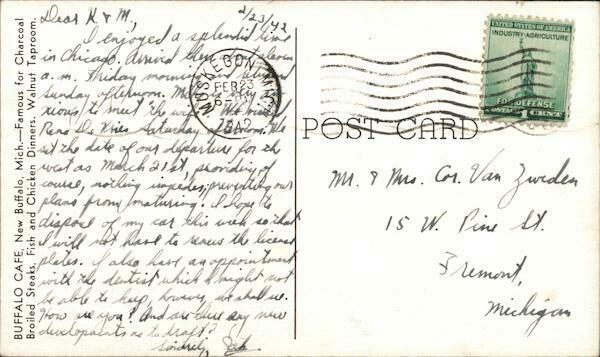 BUFFALO CAFE, New Buffalo, Mich.—Famous for Charcoal
Broiled Steaks, Fish and Chicken Dinners. Walnut Taproom.
2/23/42
Dear K & M,
I enjoyed a splendid time
in Chicago. Arrived there about eleven
a.m. Friday morning
Sunday afternoon.
to meet "the
De Vries Saturday We
set the date of our departure for the
west as March 21st, providing, of
course, nothing impedes, preventing our
plans from maturing. I hope to
dispose of my car this week so that
I will not have to renew the license
plates. I also have an appointment
with the dentist which I might not
be able to keep, however, we shall see.
How are you? And are there any new
developments as to draft?
Sincerely,
MUSKEGON MICH.
FEB 23
1942
UNITED STATES OF AMERICA
INDUSTRY AGRICULTURE
FOR DEFENSE
1 CENT
POST CARD
Mr. & Mrs. Cor. Van Zweden
15 W. Pine St.
Fremont,
Michigan